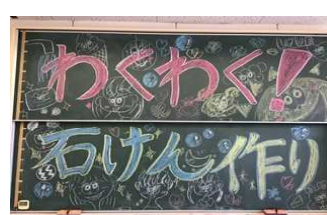 わくわく!
石けん作り